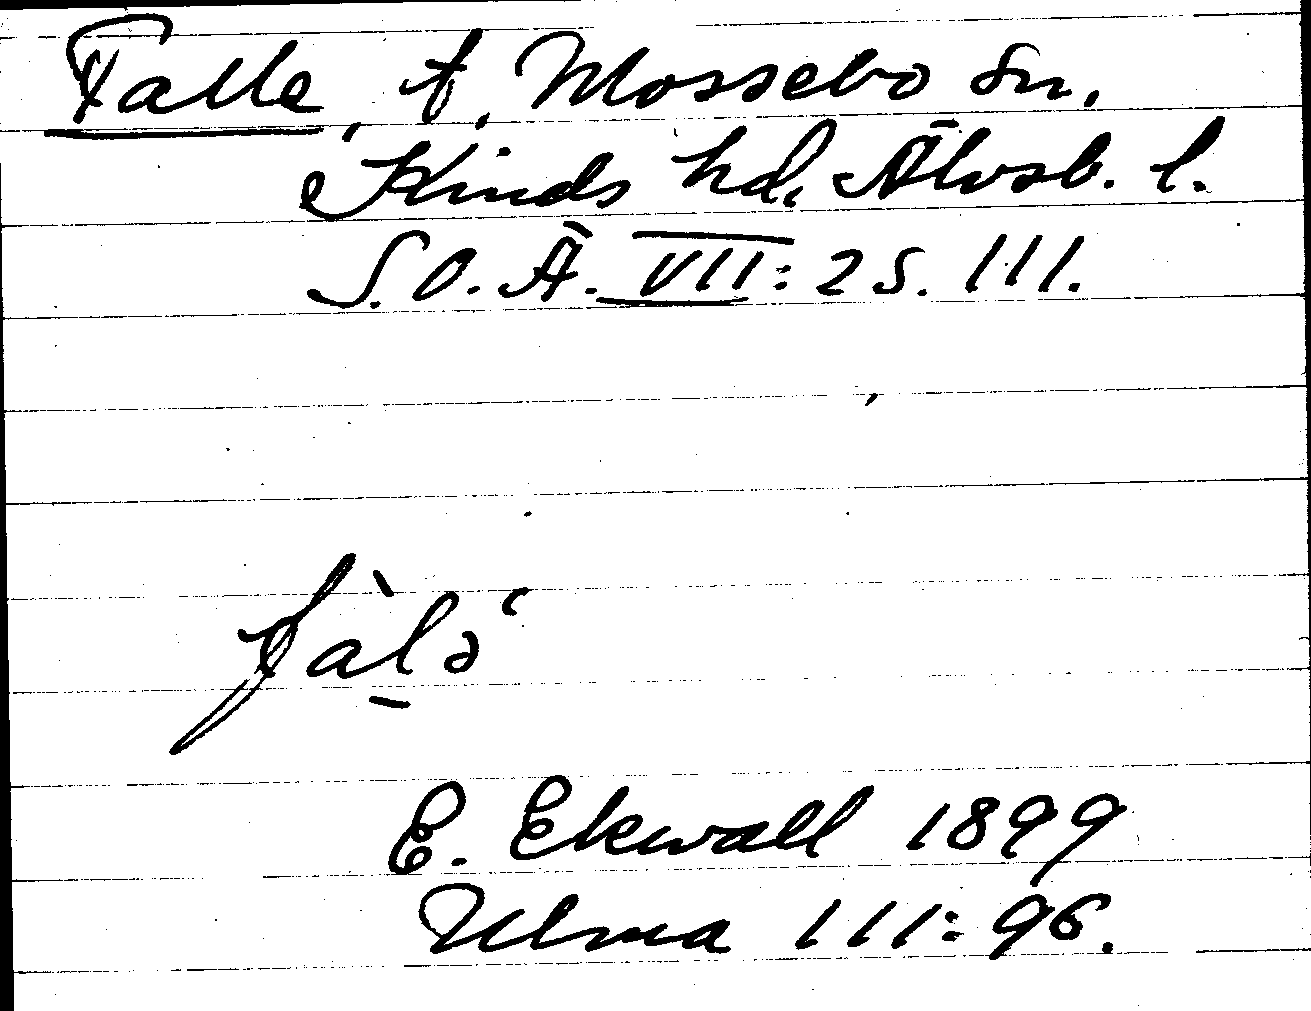 Falle, f, Mossebo sn,
Kinds hd, Älvsb. l.
S.O.Ä. VII: 25. III.
fàlə‘
E. Ekwall 1899
Ulma 111:96.